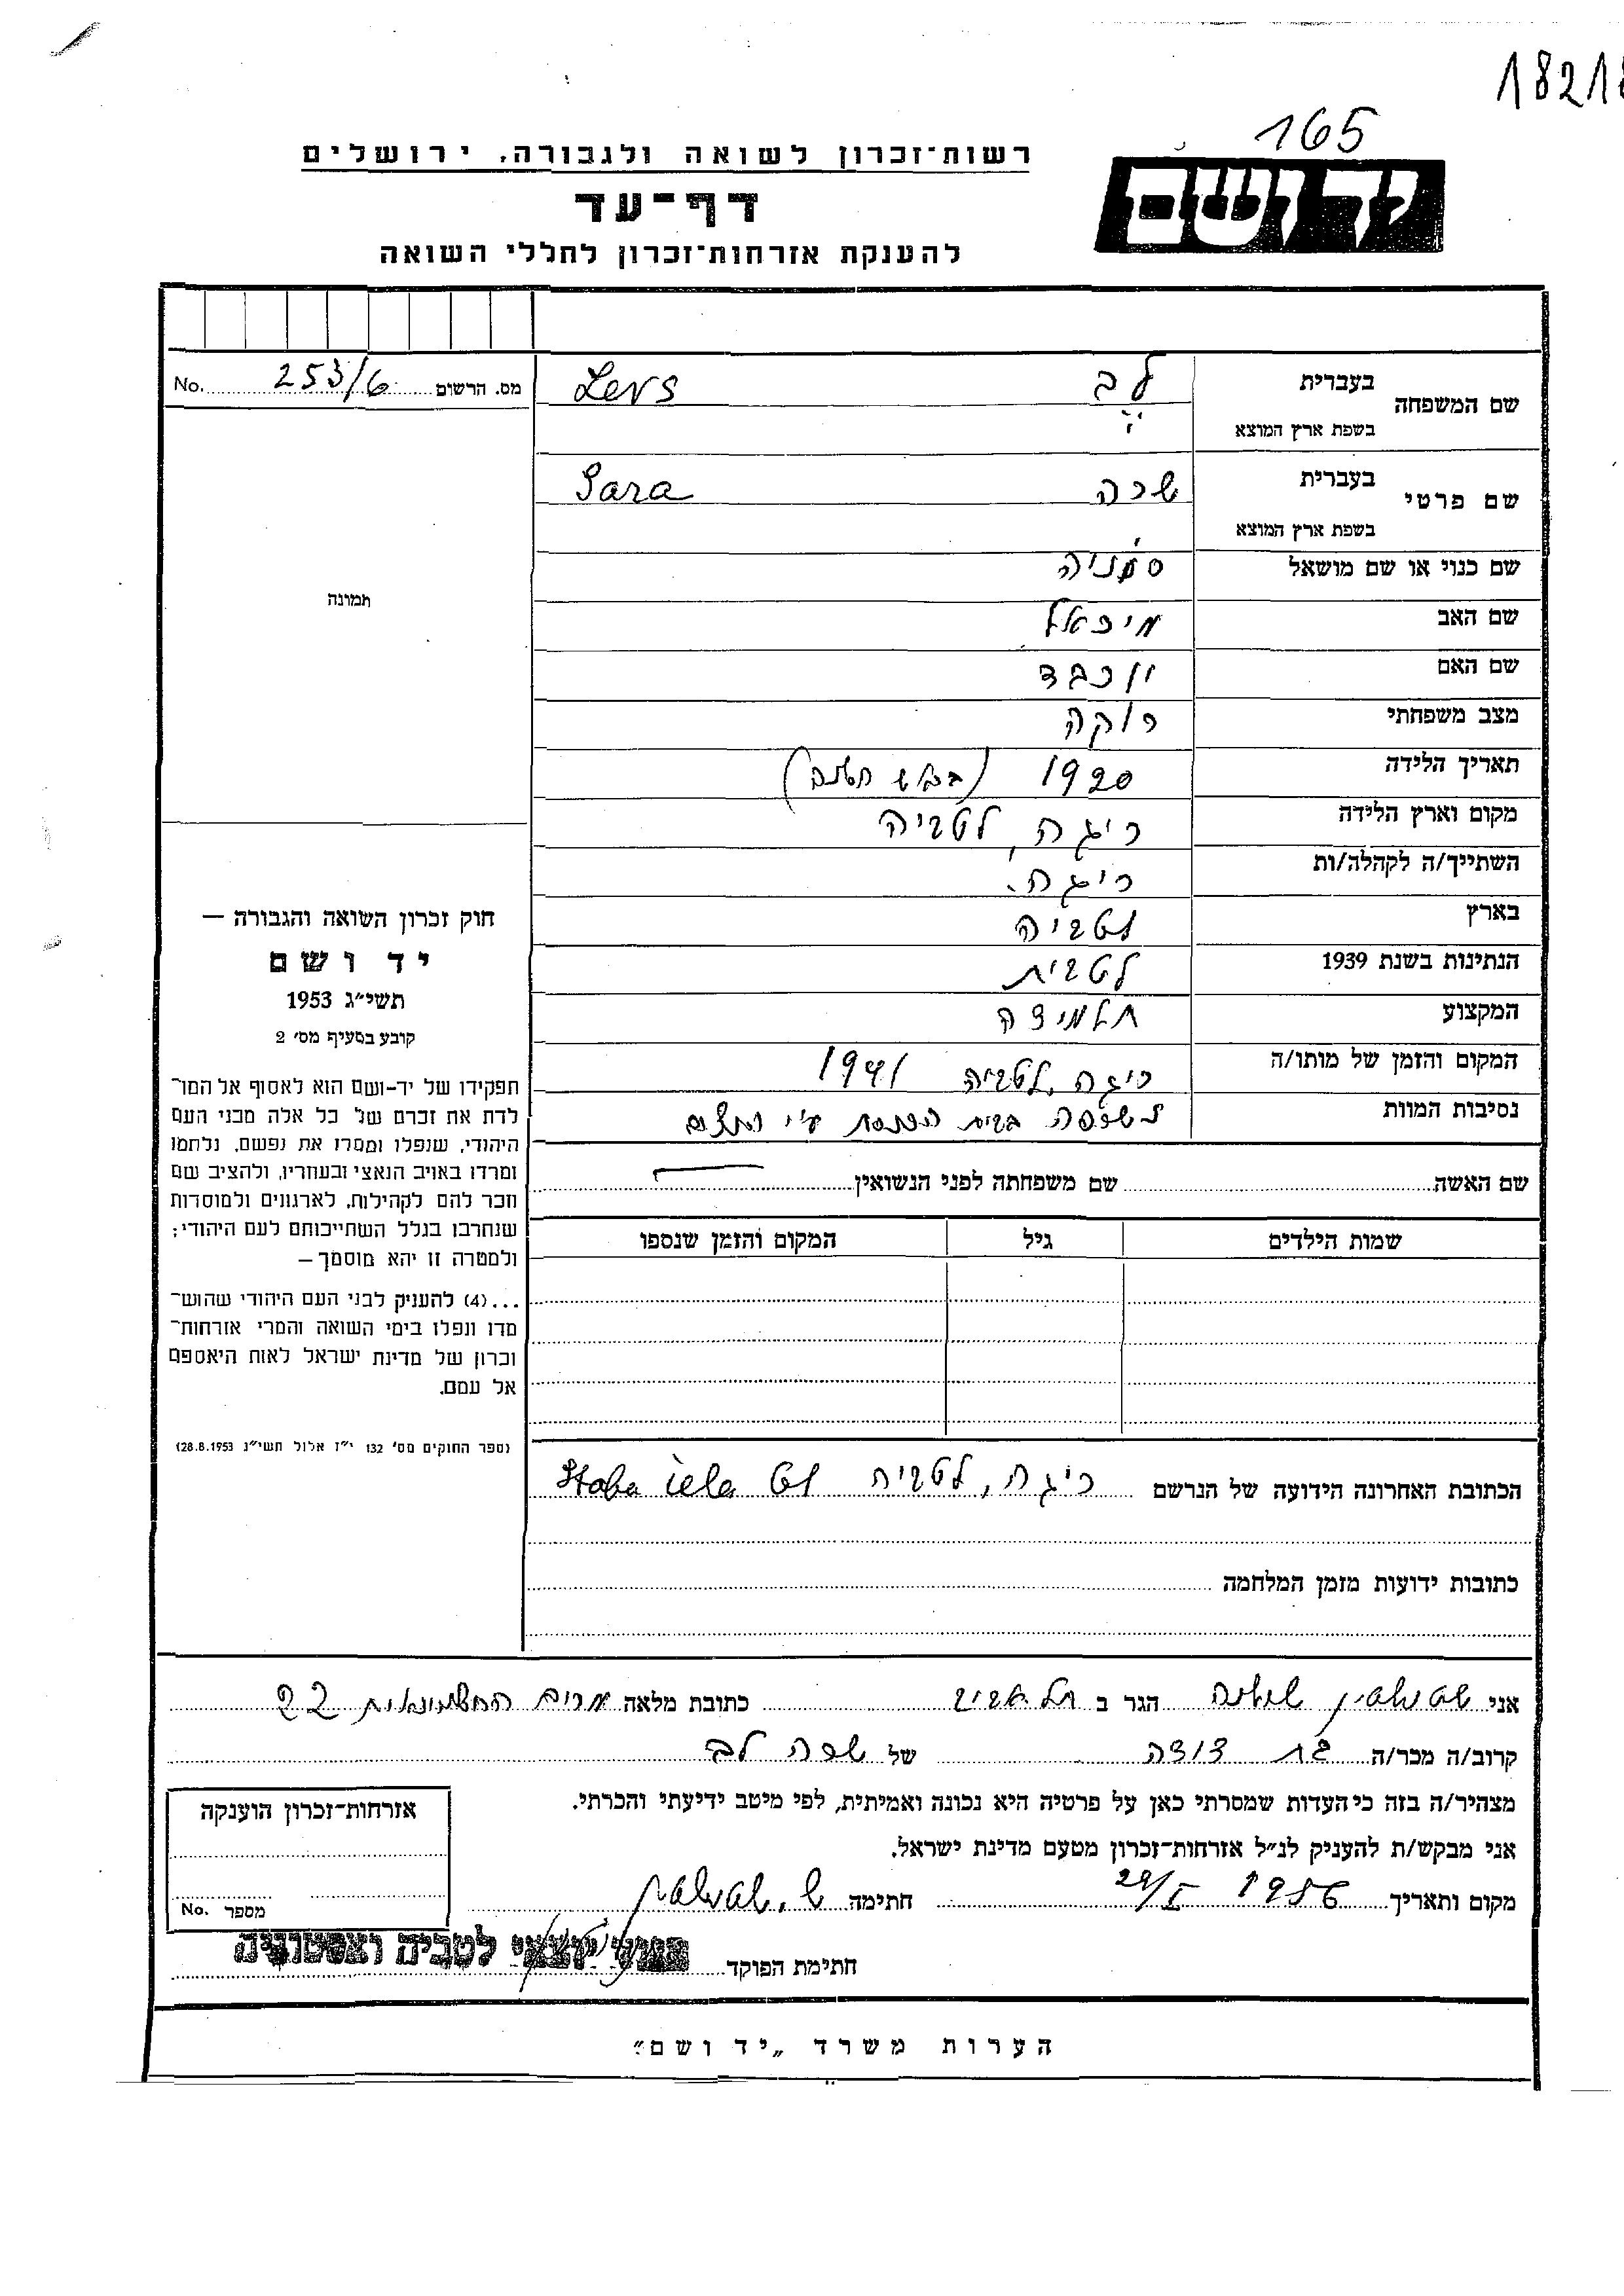 18218
165
יד ושם
רשות־זכרון לשואה ולגבורה, ירושלים
דף־עד
להענקת אזרחות־זכרון לחללי השואה
מס. הרשום 253/6 No.
שם המשפחה בעברית לב Levs
בשפת ארץ המוצא
שם פרטי בעברית שרה Sara
בשפת ארץ המוצא
שם כנוי או שם מושאל סוניה
שם האב מיכאל
שם האם יוכבד
מצב משפחתי רוקה
תאריך הלידה 1920
מקום וארץ הלידה ריגה, לטביה
השתייך/ה לקהלה/ות ריגה.
בארץ לטביה
הנתינות בשנת 1939 לטבית
המקצוע תלמידה
המקום והזמן של מותו/ה ריגה, לטביה 1941
נסיבות המוות נשרפה בבית הכנסת ע"י
תמונה
חוק זכרון השואה והגבורה —
יד ושם
תשי״ג 1953
קובע בסעיף מס׳ 2
תפקידו של יד-ושם הוא לאסוף אל המו־
לדת את זכרם של כל אלה מבני העם
היהודי, שנפלו ומסרו את נפשם, נלחמו
ומרדו באויב הנאצי ובעוזריו, ולהציב שם
וזכר להם לקהילות, לארגונים ולמוסדות
שנחרבו בגלל השתייכותם לעם היהודי;
ולמטרה זו יהא מוסמך —
...(4) להעניק לבני העם היהודי שהוש־
מדו ונפלו בימי השואה והמרי אזרחות־
זכרון של מדינת ישראל לאות היאספם
אל עמם.
(ספר החוקים מס׳ 132 י״ז אלול תשי״ג 28.8.1953)
שם האשה שם משפחתה לפני הנשואין
שמות הילדים גיל המקום והזמן שנספו
הכתובת האחרונה הידועה של הנרשם ריגה, לטביה iela
כתובות ידועות מזמן המלחמה
אני הגר ב תל אביב כתובת מלאה החשמונאים 22
קרוב/ה מכר/ה בת דודה של שרה לב
מצהיר/ה בזה כי העדות שמסרתי כאן על פרטיה היא נכונה ואמיתית, לפי מיטב ידיעתי והכרתי.
אני מבקש/ת להעניק לנ״ל אזרחות־זכרון מטעם מדינת ישראל.
מקום ותאריך 1956 29/I חתימה
חתימת הפוקד יוצאי לטביה ואסטוניה
אזרחות־זכרון הוענקה
מספר No.
הערות משרד „יד ושם״